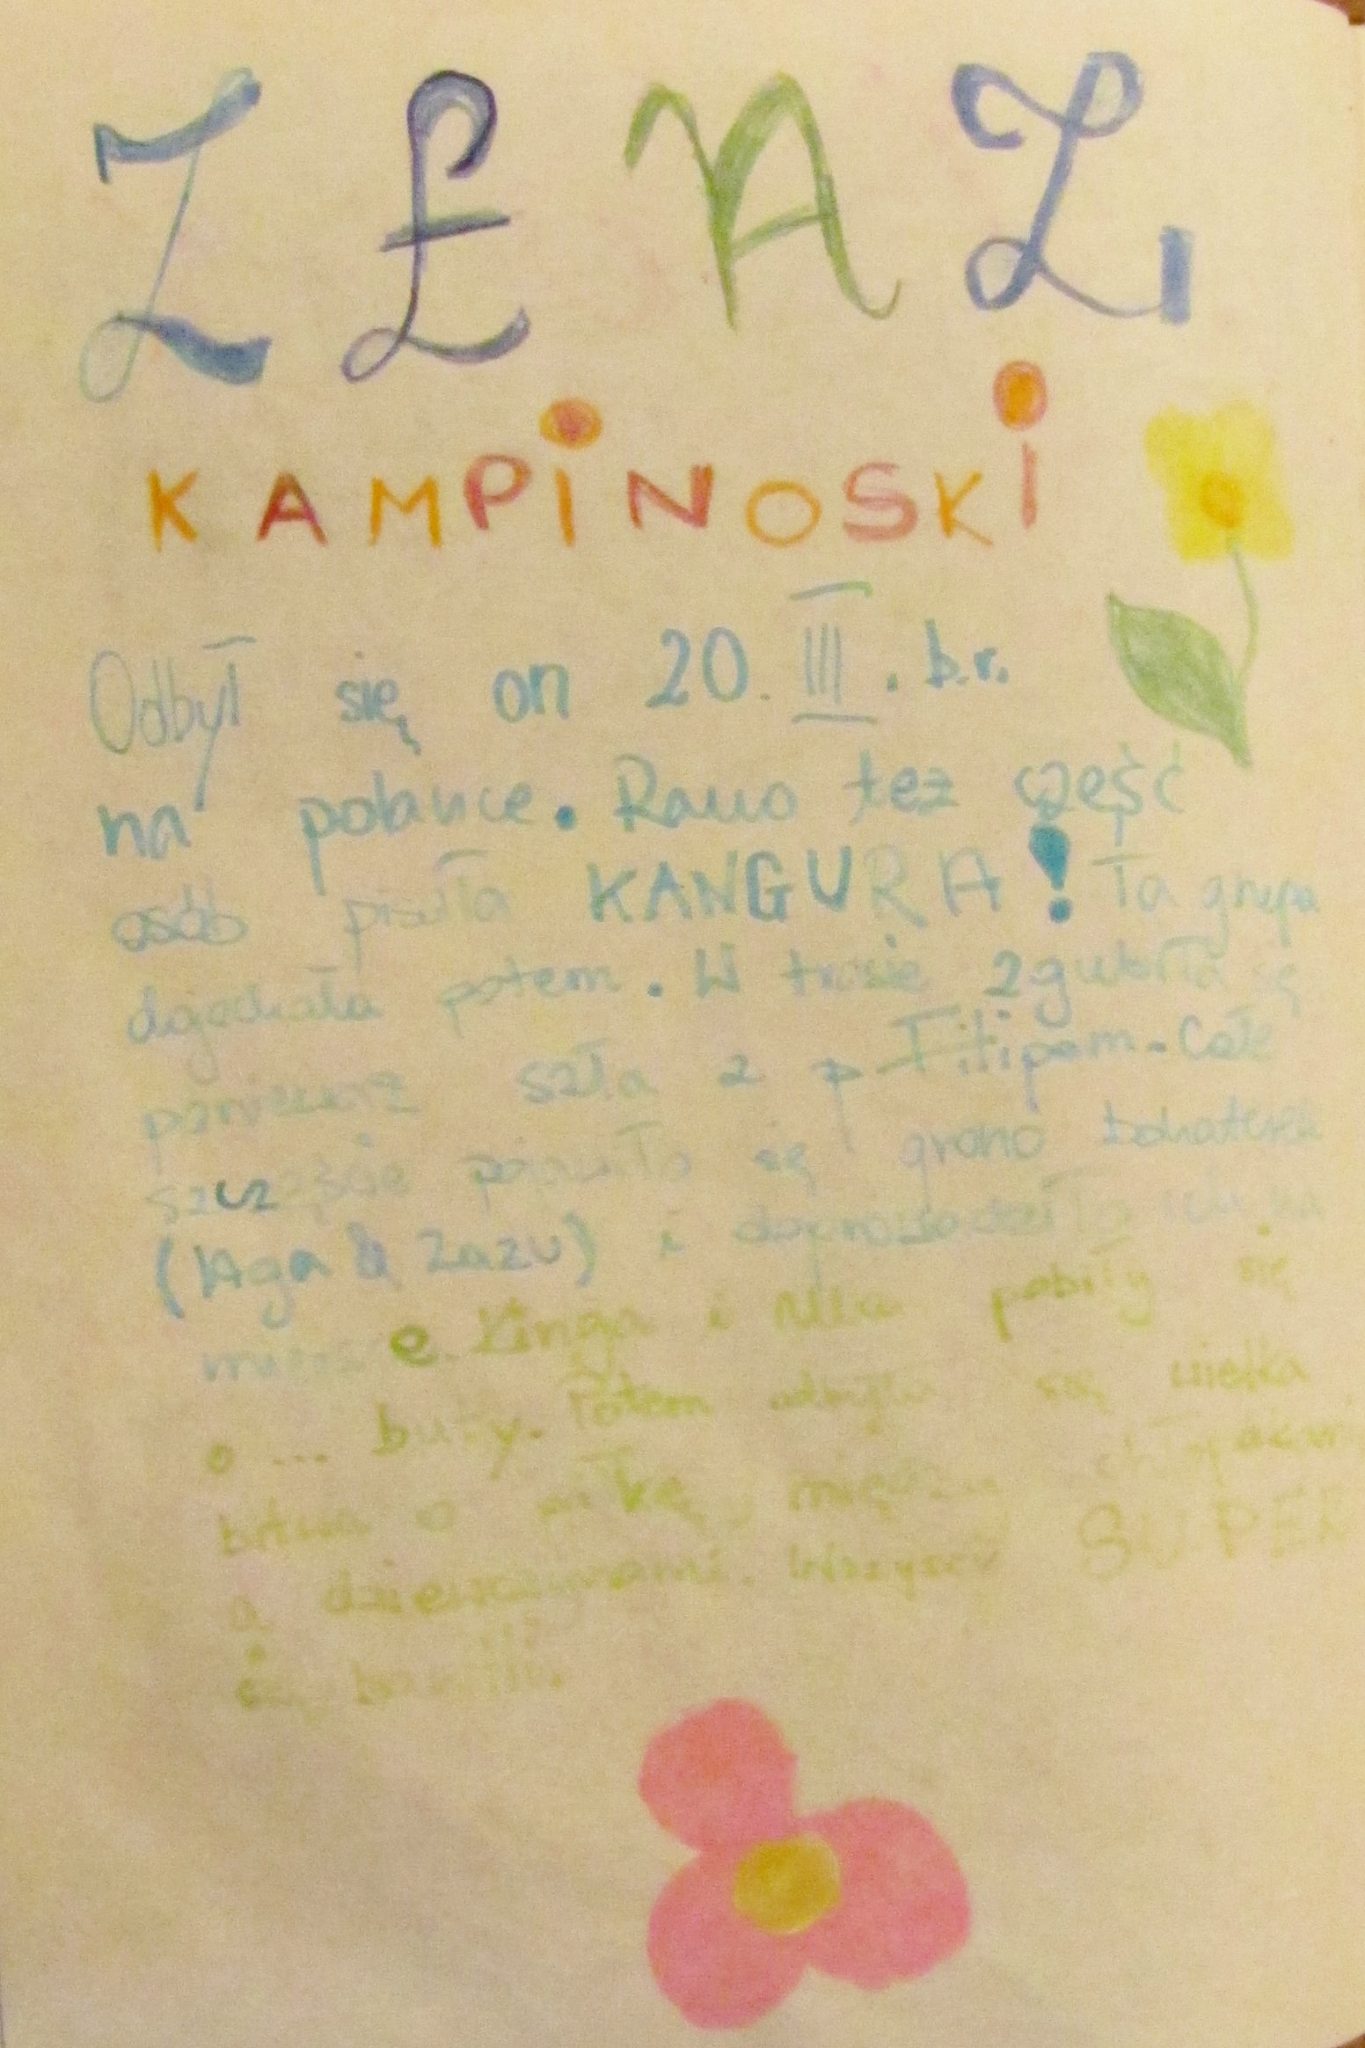 ZŁAZ
KAMPINOSKI
Odbył się on 20. III. b.r.
na polance. Rano też część
osób pisała KANGURA! Ta grupa
dojechała potem. W trasie zgubiła się
ponieważ szła z p. Filipem. Całe
szczęście pojawiło się grono bohaterek
(Aga & Zazu) i doprowadziło ich na
Kinga i pobiły się
o ... buty. Potem odbyła się wielka
bitwa o piłkę, między chłopakami
a dziewczynami. Wszyscy SUPER
się bawili.